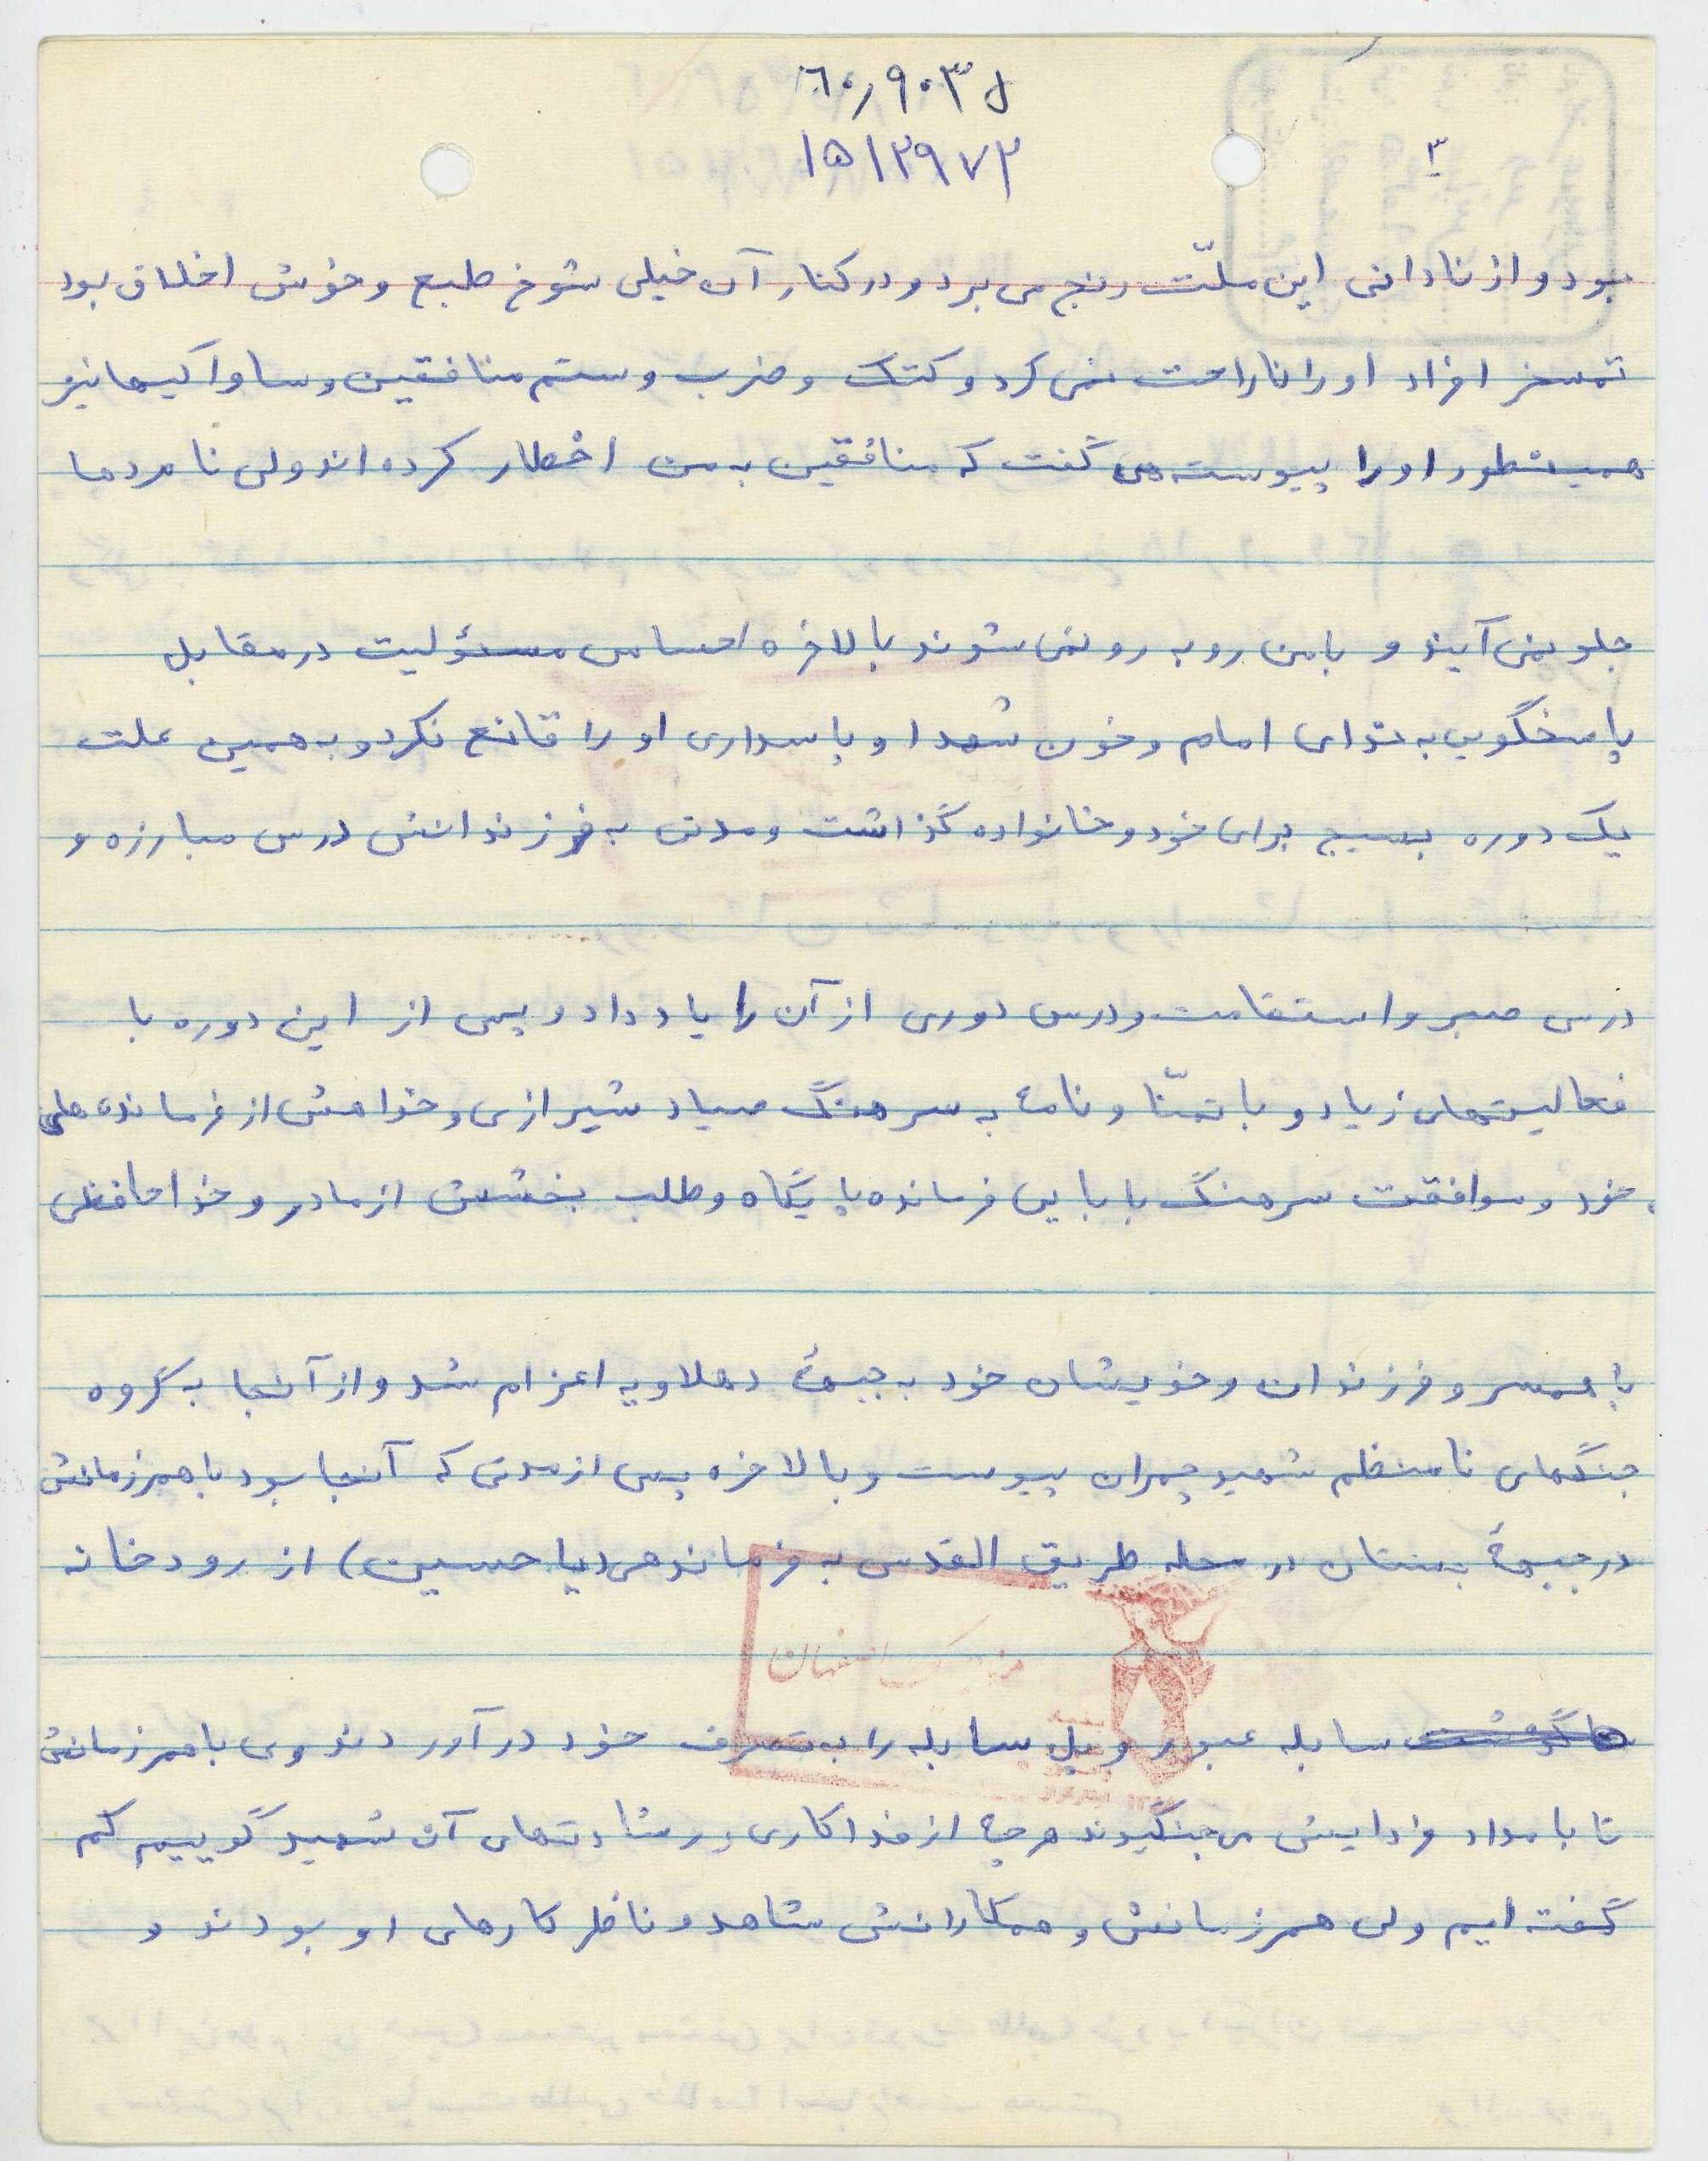 ۶۰٫۹۰۳ل
۱۵۱۲۹۷۲
۳
بود و از نادانی این ملّت رنج می برد و در کنار آن خیلی شوخ طبع و خوش اخلاق بود
تمسخر افراد او را ناراحت نمی کرد و کتک و ضرب و ستم منافقین و ساواکیها نیز
همینطور او را پیوسته می گفت که منافقین به من اخطار کرده اند ولی نامردها
جلو نمی آیند و با من روبه رو نمی شوند بالاخره احساس مسئولیت در مقابل
پاسخگویی به ندای امام و خون شهدا و پاسداری او را قانع نکرد و به همین علت
یک دوره بسیج برای خود و خانواده گذاشت و مدتی به فرزندانش درس مبارزه و
درس صبر و استقامت و درس دوری از آن را یاد داد و پس از این دوره با
فعالیتهای زیاد و با تمنّا و نامهٔ به سرهنگ صیاد شیرازی و خواهش از فرمانده های
خود و موافقت سرهنگ بابایی فرمانده پایگاه و طلب بخشش از مادر و خداحافظی
با همسر و فرزندان و خویشان خود به جبههٔ دهلاویه اعزام شد و از آنجا به گروه
جنگهای نامنظم شهید چمران پیوست و بالاخره پس از مدتی که آنجا بود با همرزمانش
در جبههٔ بستان در حمله طریق القدس به فرماندهی (یا حسین) از رودخانه
سابله عبور و پل سابله را به تصرف خود در آوردند و وی با همرزمانش
تا بامداد فردایش می جنگیدند هرچه از فداکاری و رشادتهای آن شهید گوییم کم
گفته ایم ولی همرزمانش و همکارانش شاهد و ناظر کارهای او بودند و